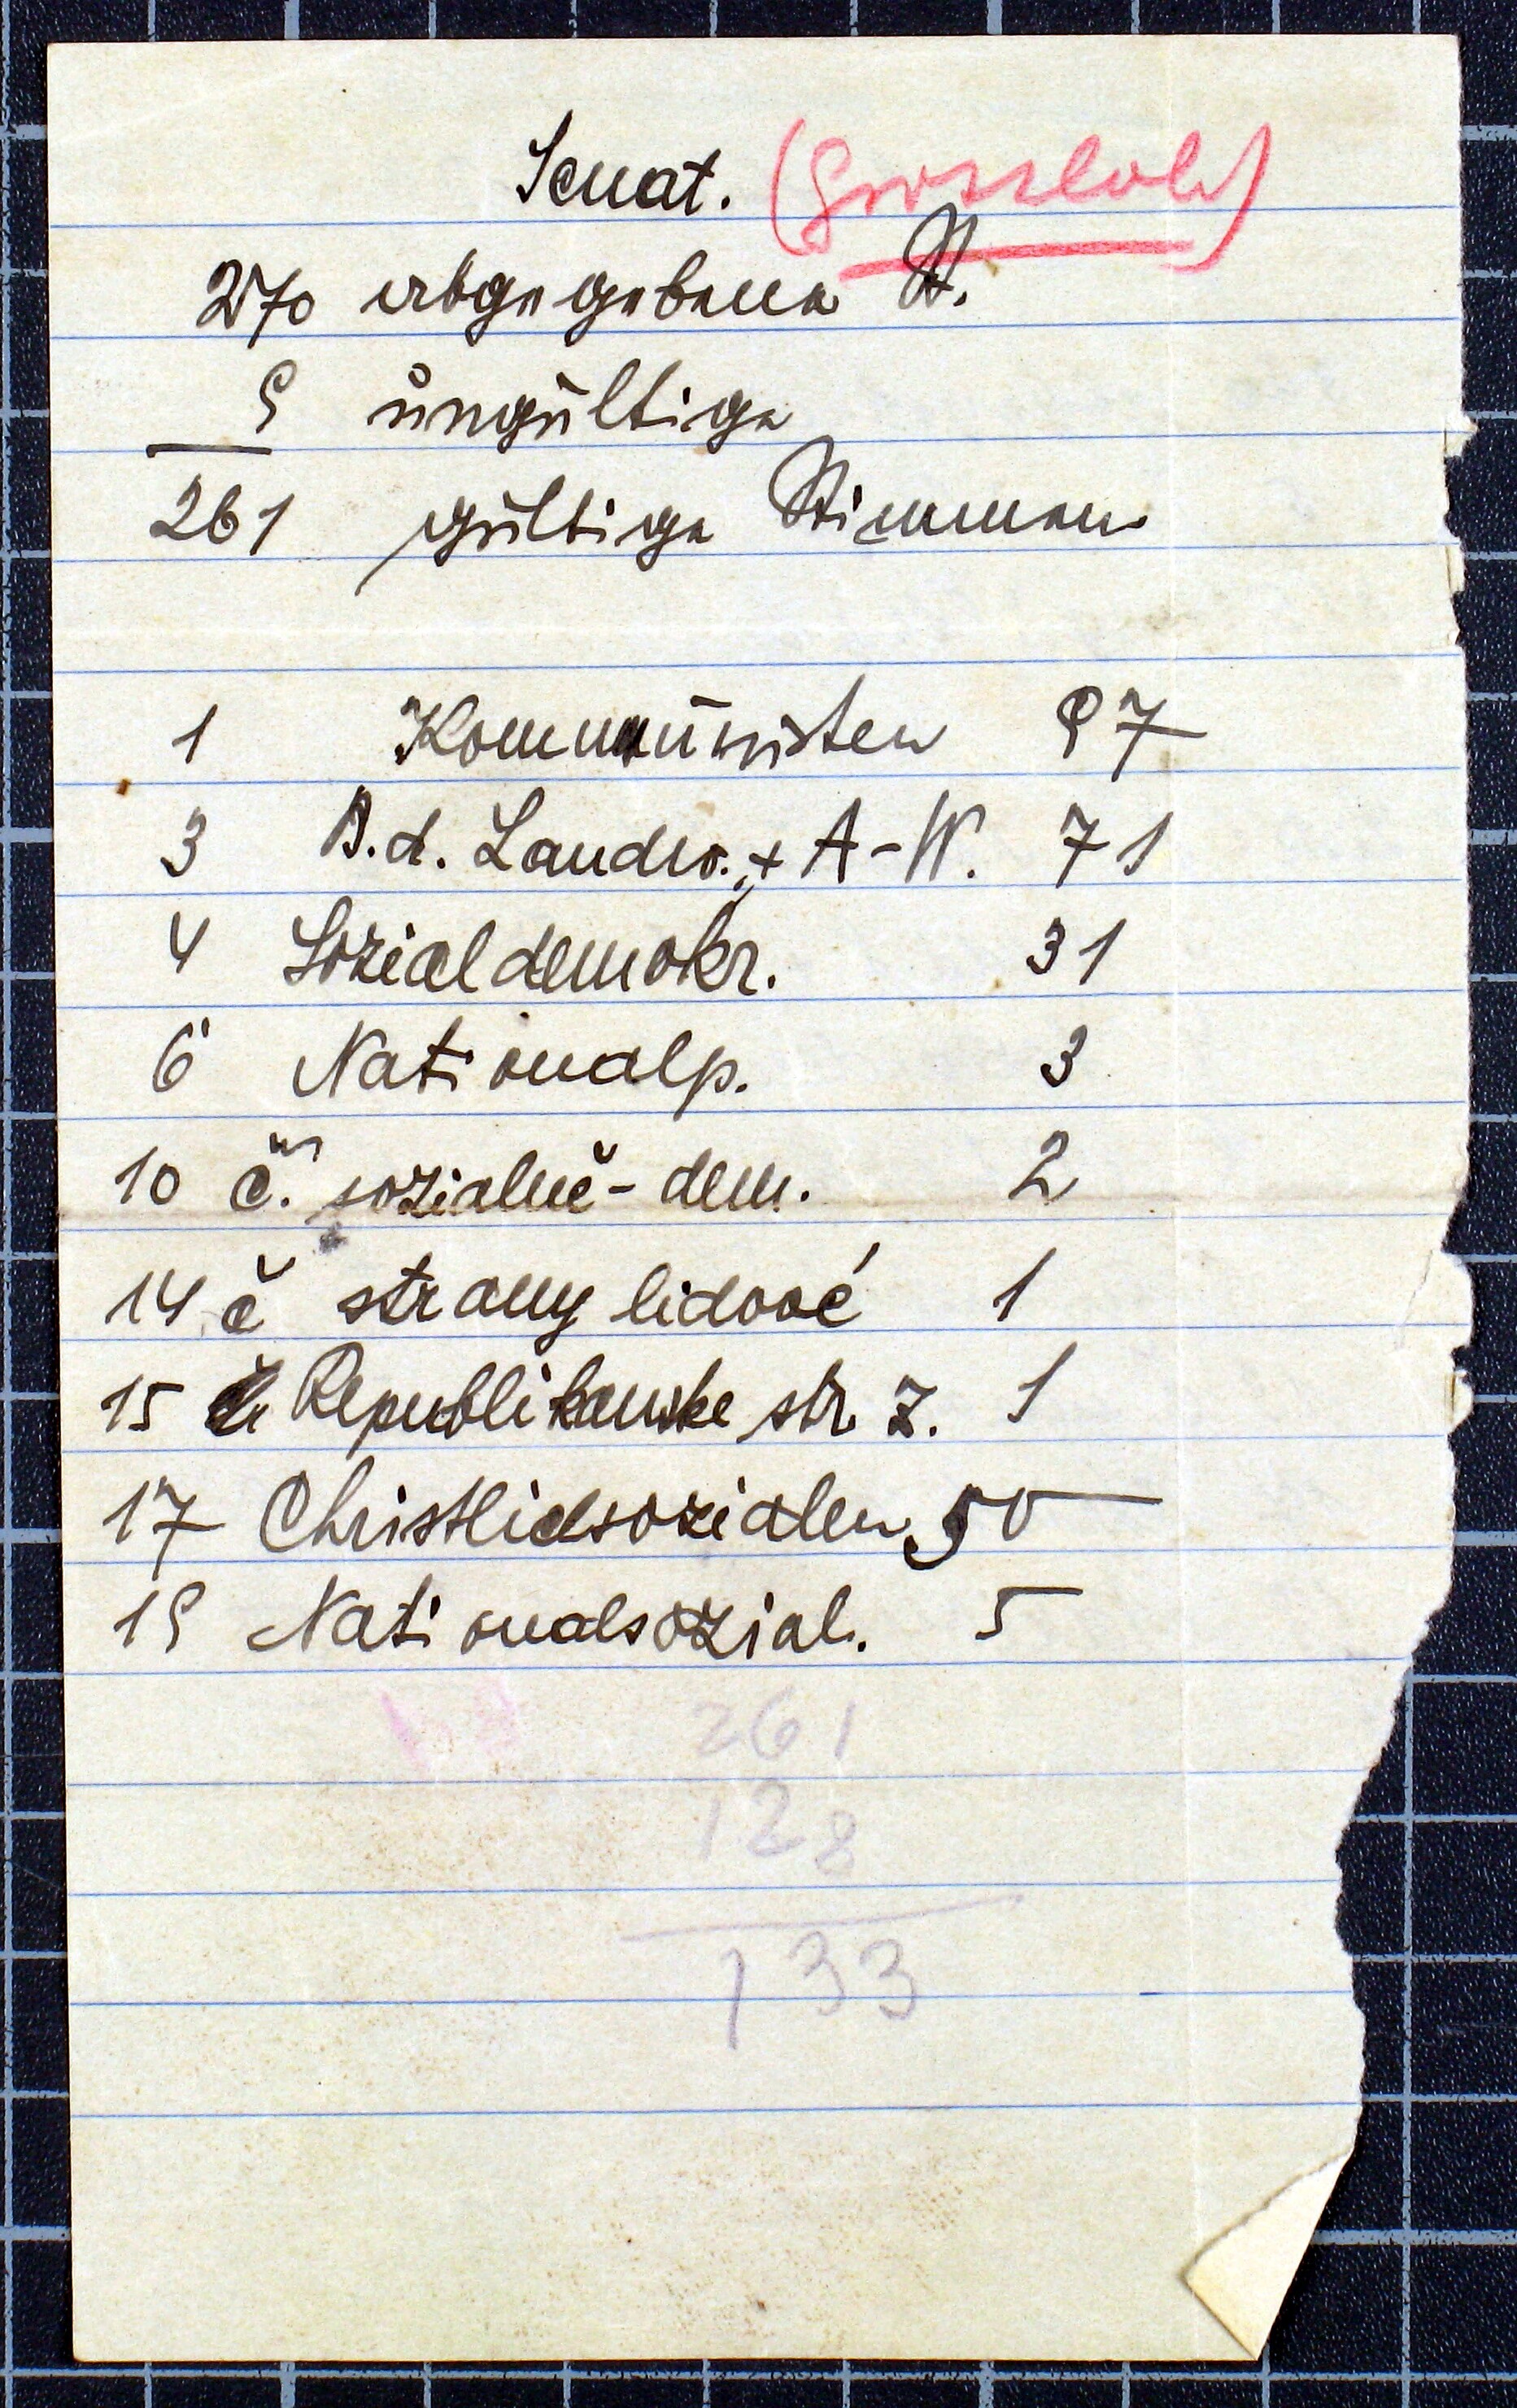 Senat. (Grosslohe)
270 abgegebene St.
9 ungültige
261 gültige Stimmen
1 Kommunisten 97
3 B.d. Landw. + A-W. 71
4 Sozialdemokr. 31
6 Nationalp. 3
10 č. sozialně-dem. 2
14 č strany lidové 1
15 Republikanske str. z. 1
17 Christlichsozialen 50
19 Nationalsozial. 5
261
128
133